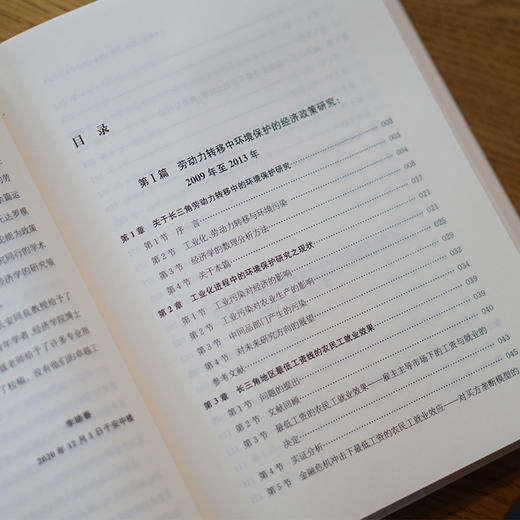 的劳
篇运
托达罗模
论能为政策
究同行的学术
济学的研究等
长安同良教授给予了
青年学者、经济学院博士
老师给予了许多专业指
了校稿。没有他们的卓越工
李晓春
2020 年 12 月 1 日于安中楼
目 录
第Ⅰ篇 劳动力转移中环境保护的经济政策研究：
2009 年至 2013 年 003
第 1 章 关于长三角劳动力转移中的环境保护研究 003
第 1 节 序 言 004
第 2 节 工业化、劳动力转移与环境污染 008
第 3 节 经济学的数理分析方法 017
第 4 节 关于本篇 021
第 2 章 工业化进程中的环境保护研究之现状 021
第 1 节 工业污染对经济的影响 025
第 2 节 工业污染对农业生产的影响 027
第 3 节 中间品部门产生的污染 034
第 4 节 对未来研究方向的展望
参考文献 039
第 3 章 长三角地区最低工资线的农民工就业效果 039
第 1 节 问题的提出 040
第 2 节 文献回顾
第 3 节 最低工资的农民工就业效果——雇主主导市场下的工资与就业的
决定 043
第 4 节 实证分析 045
第 5 节 金融危机冲击下最低工资的农民工就业效应——对买方垄断模型的